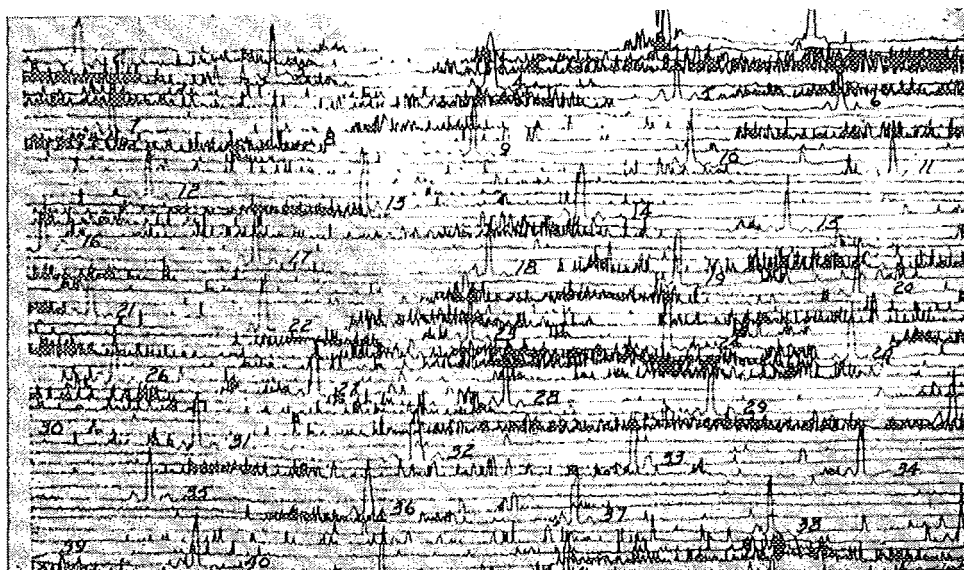 7 8 9 10 11
12 13 14 15
16 17 18 19 20
21 22 24
26 27 28 29
30 31 32 33 34
35 36 37 38
39 40